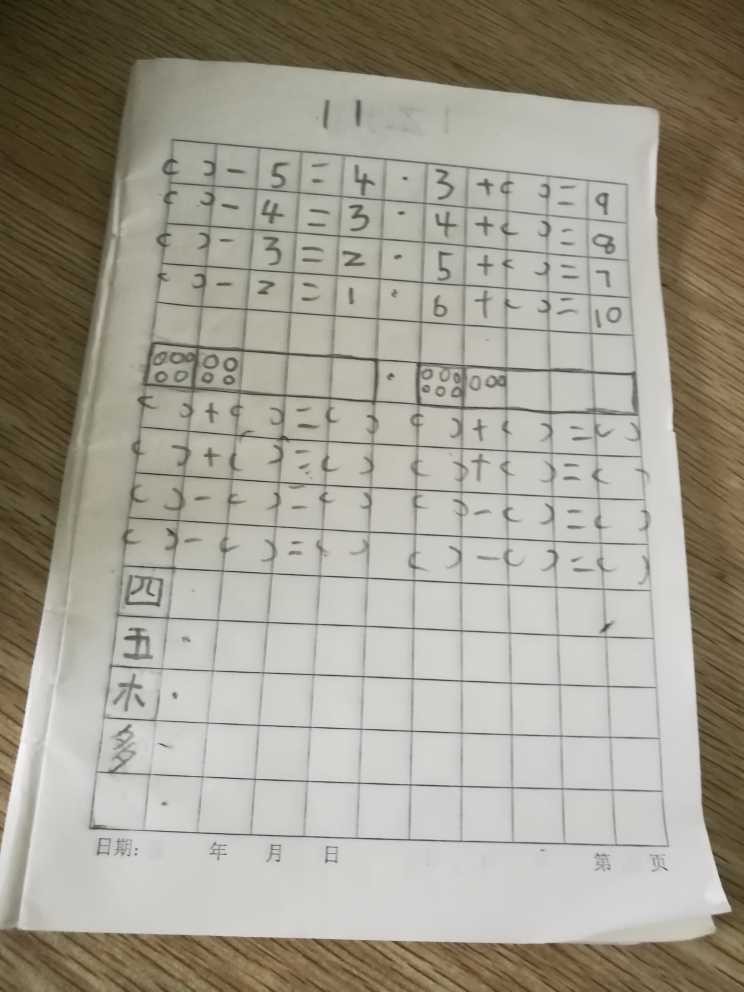 11
( ) - 5 = 4 · 3 + ( ) = 9
( ) - 4 = 3 · 4 + ( ) = 8
( ) - 3 = 2 · 5 + ( ) = 7
( ) - 2 = 1 · 6 + ( ) = 10
( ) + ( ) = ( ) ( ) + ( ) = ( )
( ) + ( ) = ( ) ( ) + ( ) = ( )
( ) - ( ) = ( ) ( ) - ( ) = ( )
( ) - ( ) = ( ) ( ) - ( ) = ( )
四
五
木
多
日期: 年 月 日 第 页